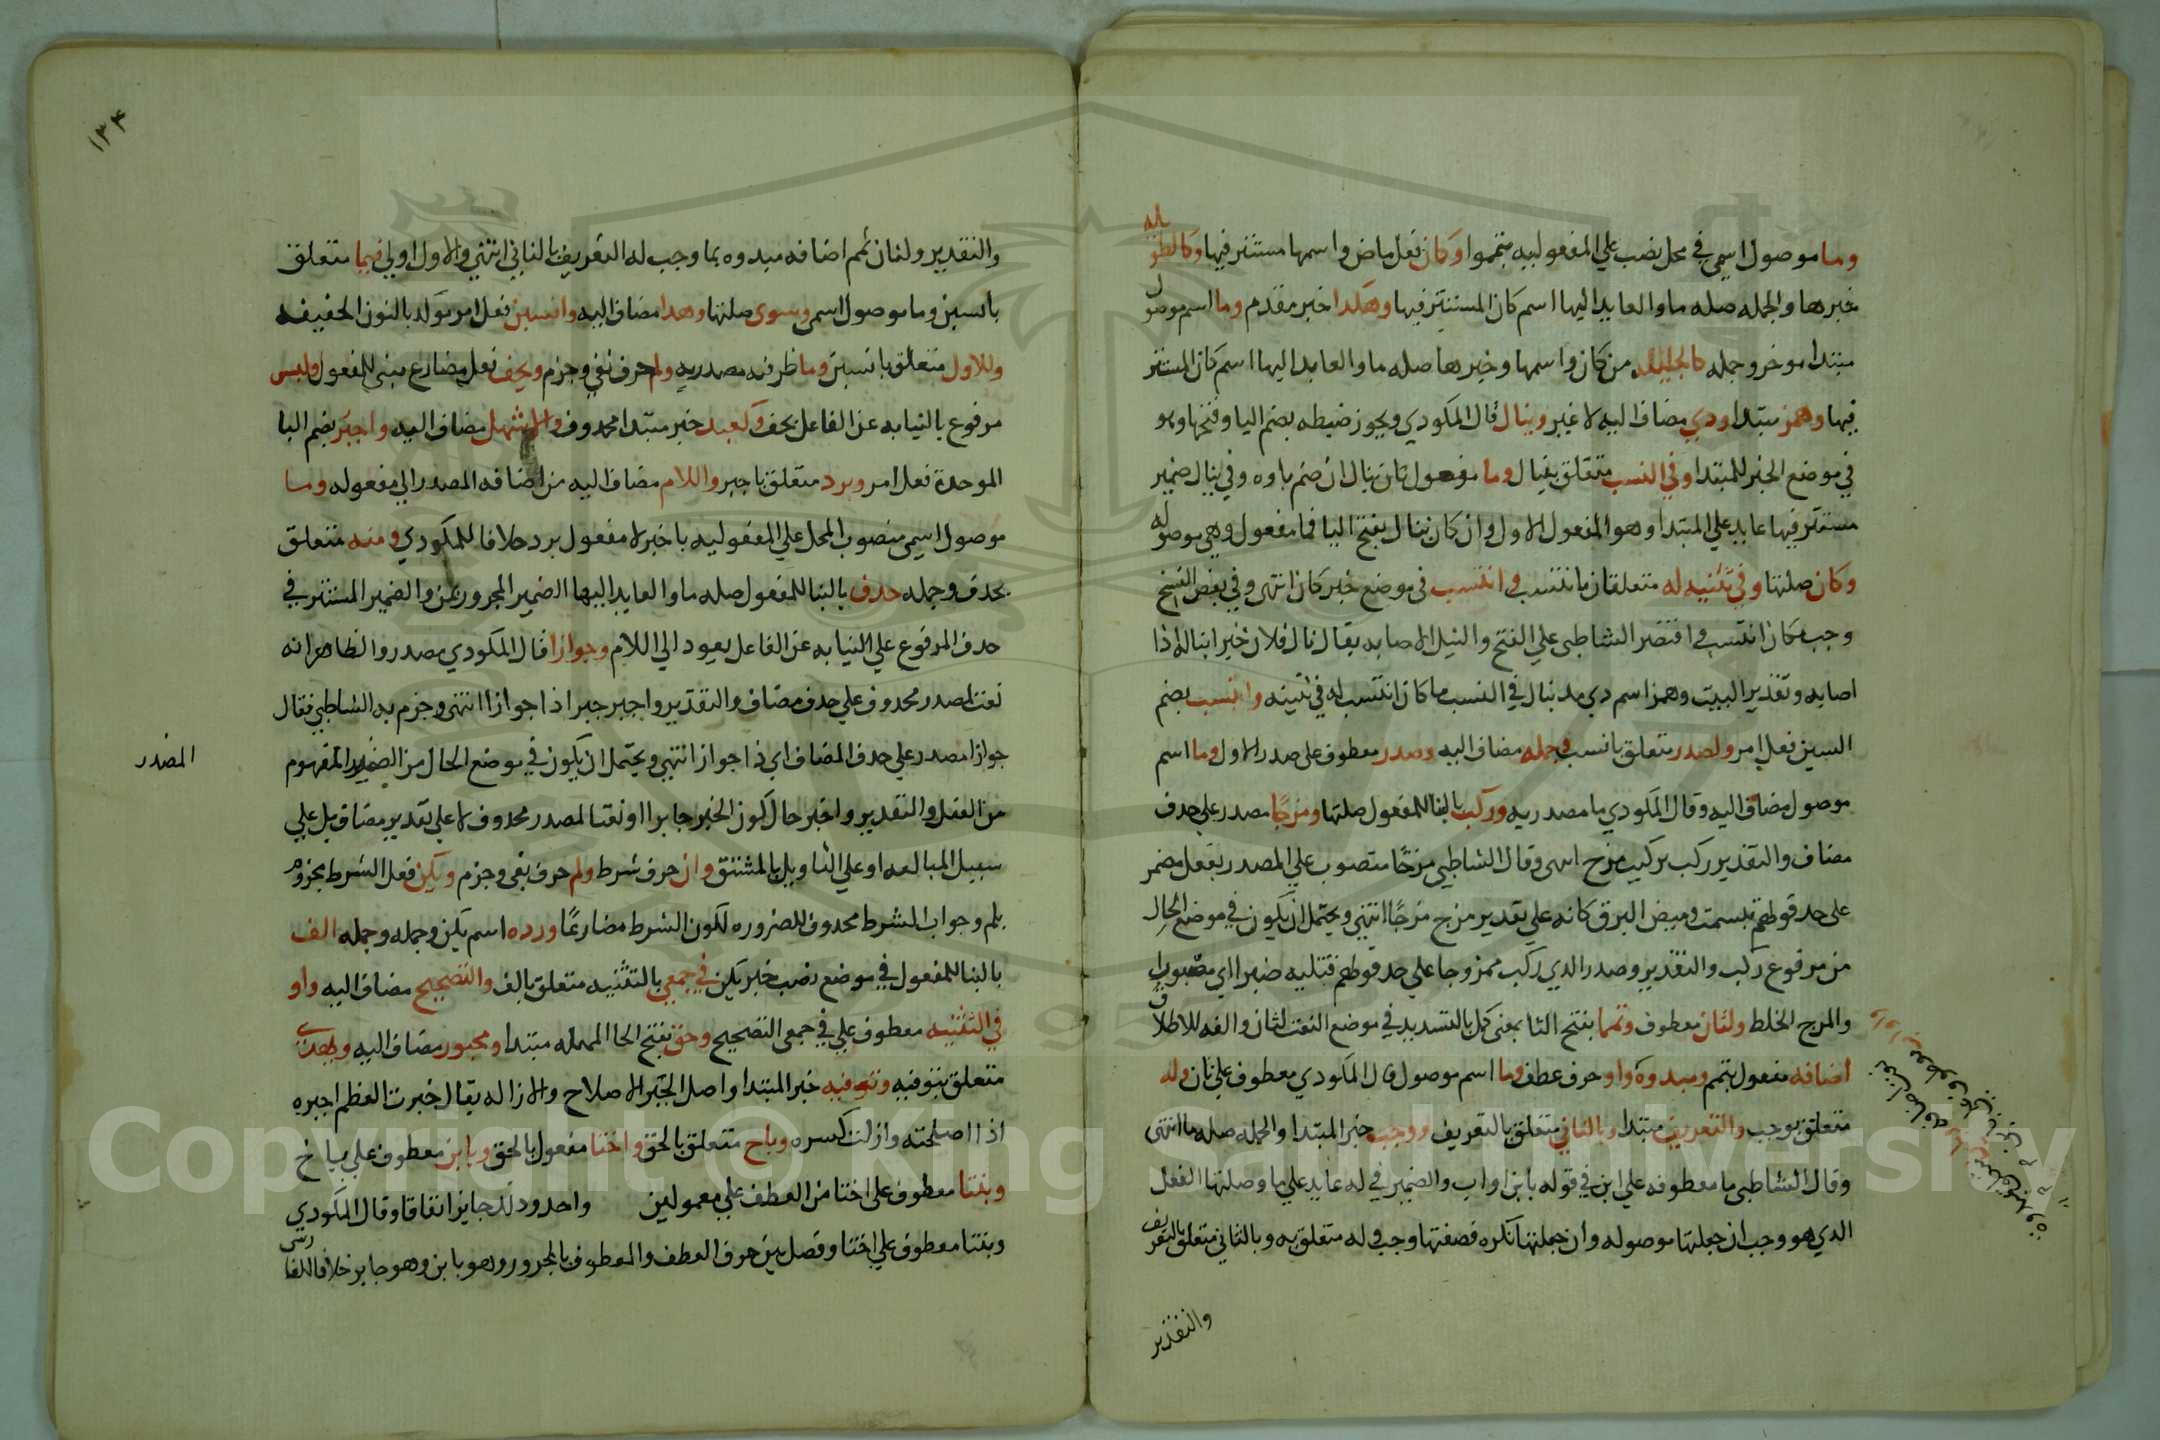 وما موصول اسمي في محل نصب علي المفعولية بتمموا وكان فعل ماض واسمها مستتر فيها وكالطويله
خبرها والجمله صله ما والعايد اليها اسم كان المستتر فيها وهكذا خبر مقدم وما اسم موصول
مبتدا موخر وجمله كالجليله من كان واسمها وخبرها صله ما والعايد اليها اسم كان المستتر
فيها وهمز مبتدا وذي مضاف اليه لا غير وينال قال المكودي ويجوز ضبطه بضم اليا وفتحها وهو
في موضع الخبر للمبتدا وفي النسب متعلق بينال وما مفعول ثان بينال ان ضم ياوه وفي ينال ضمير
مستتر فيها عايد علي المبتدا وهو المفعول الاول وان كان ينال بفتح اليا فما مفعول وهي موصوله
وكان صلتها وفي تثنيه له متعلقان بانتسب وانتسب في موضع خبر كان انتهى وفي بعض النسخ
وجب مكان انتسب واقتصر الشاطبي علي الفتح والنيل الاصابه يقال نال فلان خيرا ينال اذا
اصابه وتقدير البيت وهمز اسم ذي مد ينال في النسب ما كان انتسب له في تثنيه وانسب بضم
السين فعل امر ولصدر متعلق بانسب وجمله مضاف اليه وصدر معطوف على صدر الاول وما اسم
موصول مضاف اليه وقال المكودي ما مصدريه وركب بالبنا للمفعول صلتها ومزجا مصدر علي حذف
مضاف والتقدير ركب تركيب مزج انتهى وقال الشاطبي مزجا منصوب علي المصدر بفعل مضمر
على حد قولهم تبسمت وميض البرق كانه علي تقدير مزج مزجا انتهي ويحتمل ان يكون في موضع الحال
من مرفوع ركب والتقدير وصدر الذي ركب ممزوجا علي حد قولهم قتلته صبرا اي مصبورا
والمزج الخلط ولثان معطوف وتمما بفتح التا بمعنى كمل بالتشديد في موضع النعت لثان والفه للاطلاق
اضافه مفعول بتمم ومبدوة واو حرف عطف وما اسم موصول قال المكودي معطوف علي ثان وله
متعلق بوجب والتعريف مبتدا وبالثاني متعلق بالتعريف ووجب خبر المبتدا والجمله صله ما انتهى
وقال الشاطبي ما معطوفه علي ابن في قوله بابن او اب والضمير في له عايد علي ما وصلتها الفعل
الذي هو وجب ان جعلتها موصوله وان جعلتها نكره فصفتها وجب وله متعلق به وبالثاني متعلق بالتعريف
والتقدير
١٣٤
والتقدير ولثان تمم اضافه مبدوه بما وجب له التعريف بالثاني انتهي والاول اولي فيما متعلق
بانسبن وما موصول اسمي وسوى صلتها وهذا مضاف اليه وانسبن فعل امر موكد بالنون الخفيفه
وللاول متعلق بانسبن وما ظرفيه مصدريه ولم حرف نفي وجزم ويخف فعل مضارع مبني للمفعول ولبس
مرفوع بالنيابه عن الفاعل بيخف وكعبد خبر مبتدا محذوف والاشهل مضاف اليه واجبر بضم البا
الموحدة فعل امر وبرد متعلق باجبر واللام مضاف اليه من اضافه المصدر الي مفعوله وما
موصول اسمي منصوب المحل علي المفعوليه باجبر لا مفعول برد خلافا للمكودي ومنه متعلق
بحذف وجمله حذف بالبنا للمفعول صله ما والعايد اليها الضمير المجرور بمن والضمير المستتر في
حذف المرفوع علي النيابه عن الفاعل يعود الي اللام وجوازا قال المكودي مصدر والظاهر انه
نعت لمصدر محذوف علي حذف مضاف والتقدير واجبر جبرا ذا جواز انتهي وجزم به الشاطبي فقال
جوازا مصدر علي حذف المضاف اي ذا جواز انتهي ويحتمل ان يكون في موضع الحال من الضمير المفهوم
المصدر
من الفعل والتقدير واجبر حال كون الخبر جابرا او نعتا لمصدر محذوف لا علي تقدير مضاف بل علي
سبيل المبالغه او علي التاويل بالمشتق وان حرف شرط ولم حرف نفي وجزم ويكن فعل الشرط مجزوم
بلم وجواب الشرط محذوف للضروره لكون الشرط مضارعا ورده اسم يكن وجمله وجمله الف
بالبنا للمفعول في موضع نصب خبر يكن في جمعي بالتثنيه متعلق بالف والتصحيح مضاف اليه واو
في التثنيه معطوف علي في جمعي التصحيح وحق بفتح الحا المهمله مبتدا ومجبور مضاف اليه وبهذي
متعلق بتوفيه وتوفيه خبر المبتدا واصل الجبر الاصلاح والازاله يقال جبرت العظم اجبره
اذا اصلحته وازلت كسره وباخ متعلق بالحق واختا مفعول بالحق وبابن معطوف علي باخ
وبنتا معطوف على اختا من العطف علي معمولين واحد وذلك جايز اتفاقا وقال المكودي
وبنتا معطوف علي اختا وفصل بين حرف العطف والمعطوف بالمجرور وهو بابن وهو جايز خلافا للفارسي